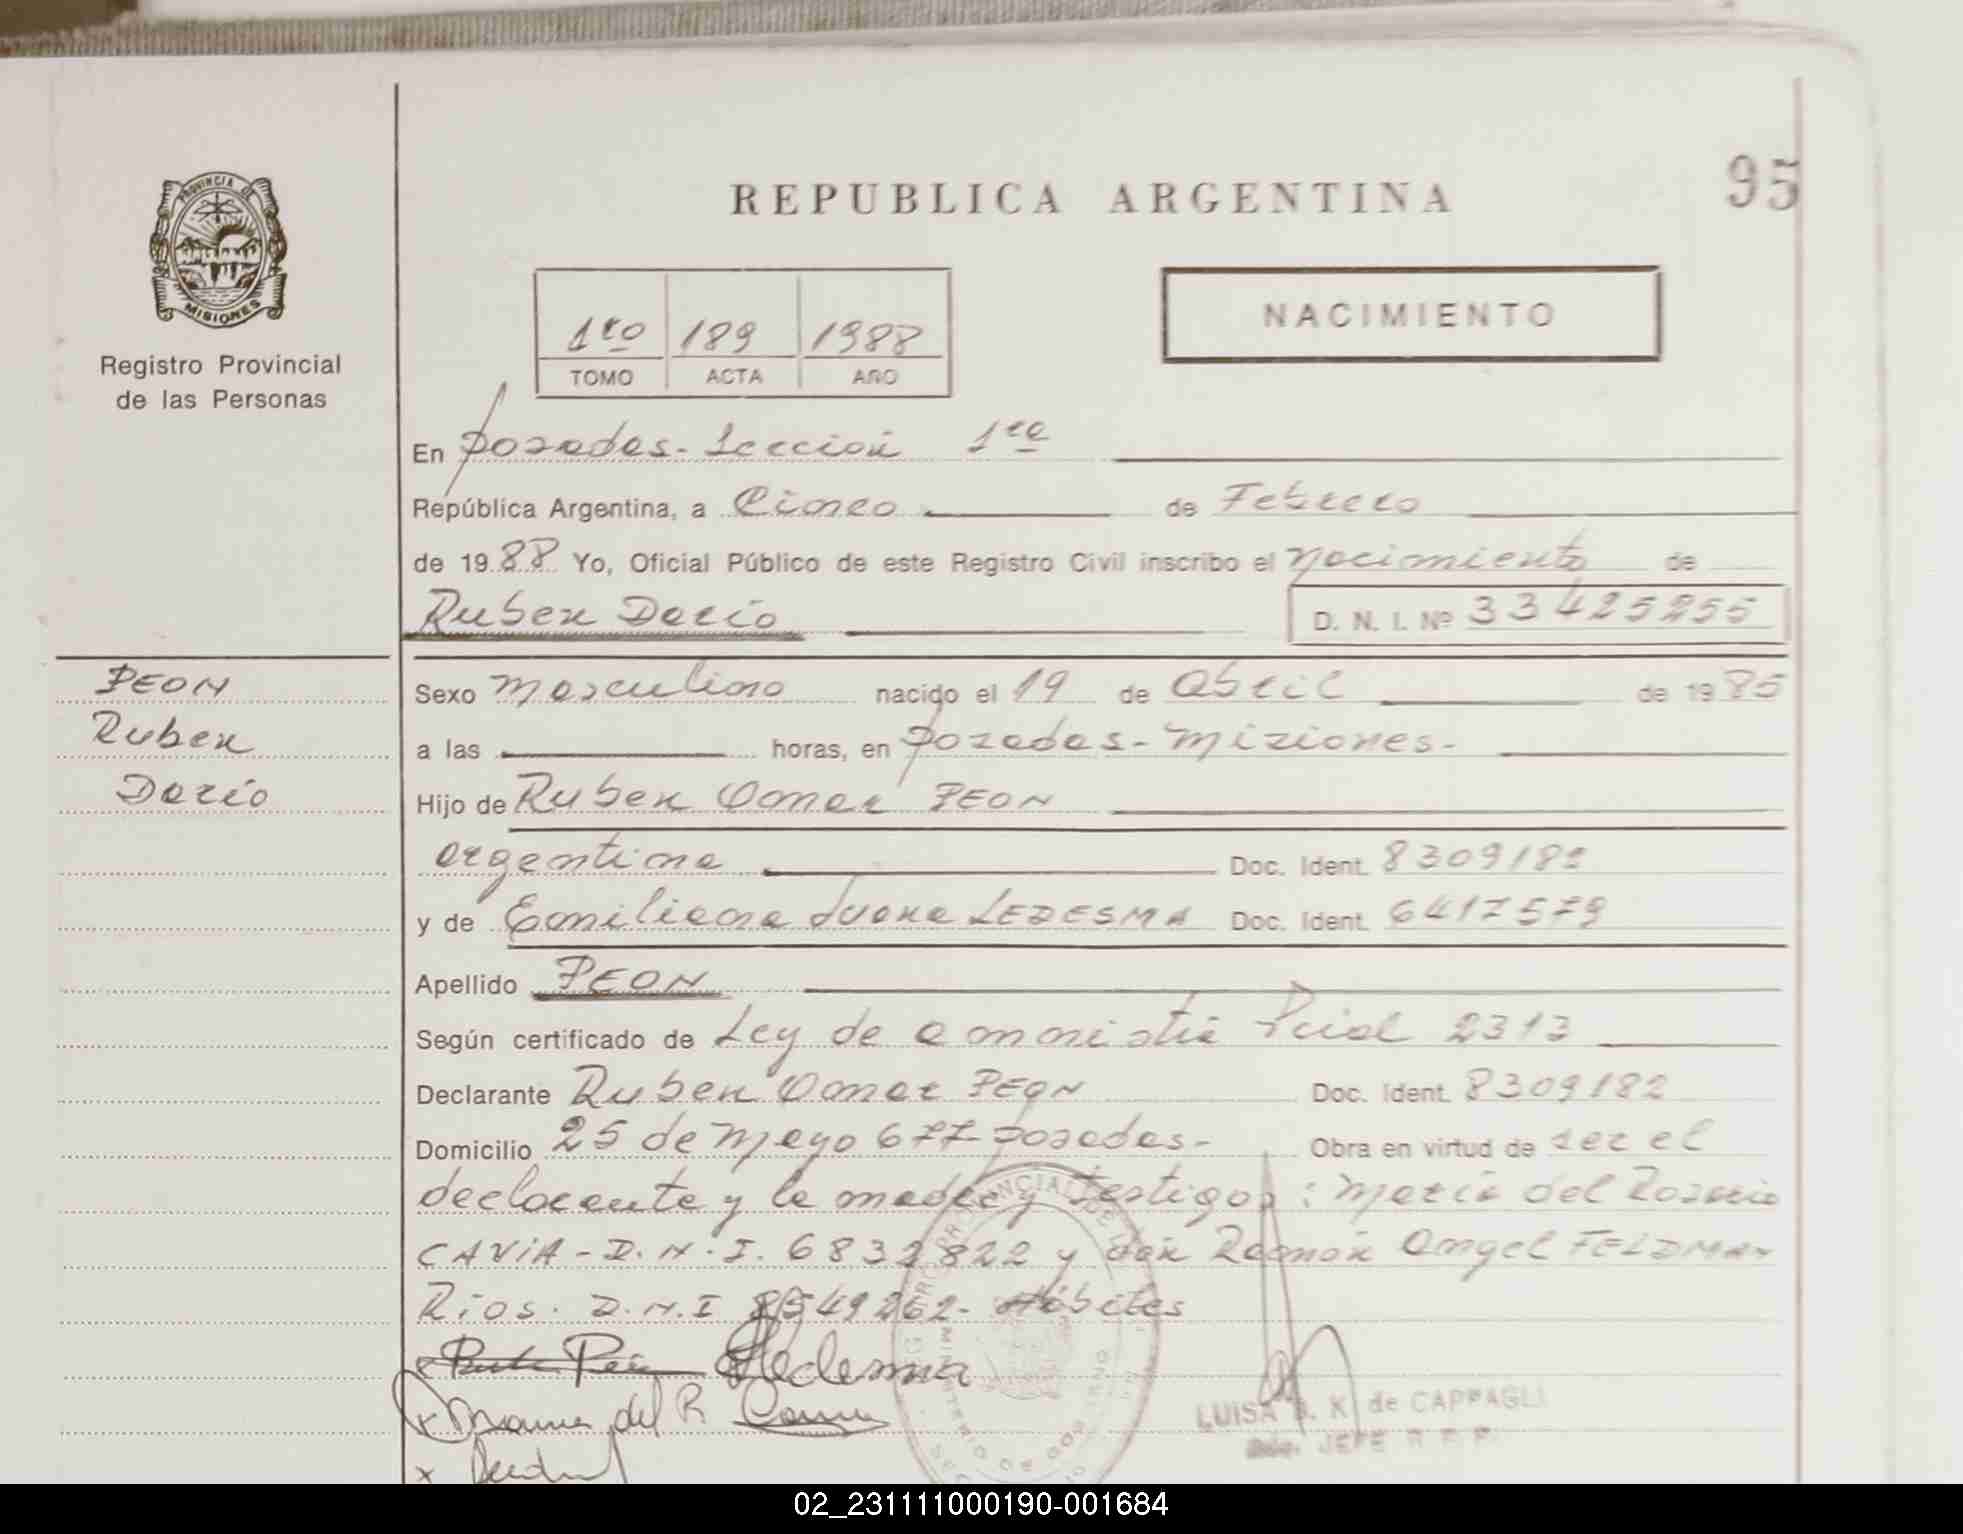 95
REPUBLICA ARGENTINA
PROVINCIA DE
MISIONES
Registro Provincial
de las Personas
1ro 189 1988
TOMO ACTA AÑO
NACIMIENTO
En Posadas - Sección 1ra
República Argentina, a Cinco de Febrero
de 1988 Yo, Oficial Público de este Registro Civil inscribo el nacimiento de
Ruben Dario D. N. I. Nº 33425255
PEON
Ruben
Dario
Sexo masculino nacido el 19 de Abril de 1985
a las horas, en Posadas - Misiones -
Hijo de Ruben Omar PEON
argentina Doc. Ident. 8309182
y de Emiliana Juana LEDESMA Doc. Ident. 6417579
Apellido PEON
Según certificado de Ley de amnistia Pcial 2313
Declarante Ruben Omar PEON Doc. Ident. 8309182
Domicilio 25 de Mayo 677 Posadas - Obra en virtud de ser el
declarante y la madre y testigos: Maria del Rosario
CAVIA - D.N.I. 6832822 y don Ramón Angel FELDMAN
Rios. D.N.I 8549262 - Hábiles
Ledesma
del R
LUISA B. K. de CAPPAGLI
JEFE R. P. P.
02_231111000190-001684